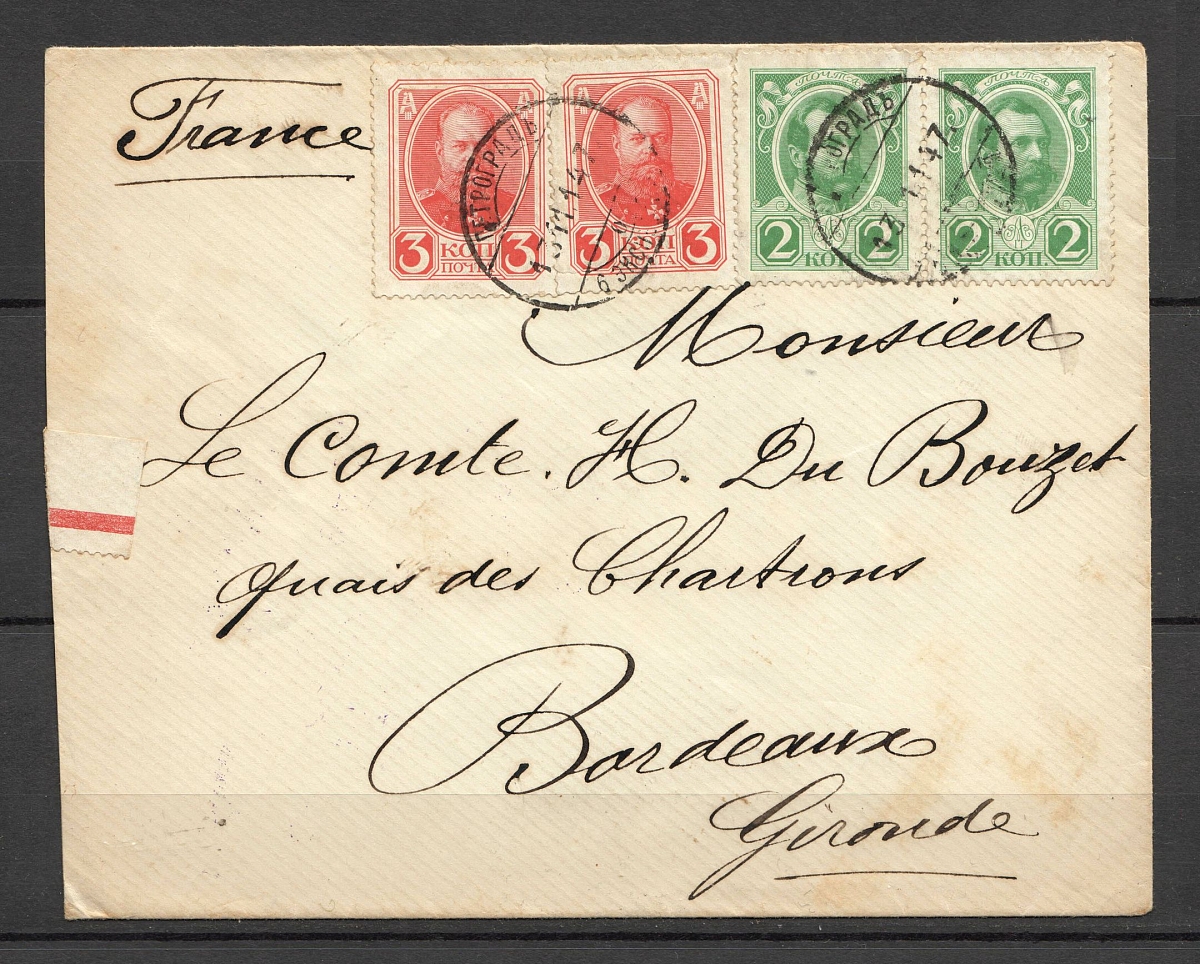 France
3 КОП 3
ПОЧТА
3 КОП 3
ПОЧТА
ПОЧТА
2 2
КОП.
ПОЧТА
2 2
КОП.
ПЕТРОГРАДЪ
Monsieur
Le Comte. H. Du Bouzet
quais des Chartrons
Bordeaux
Gironde